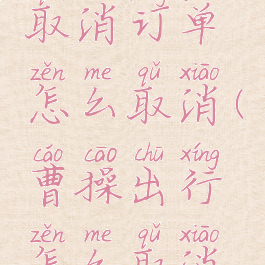 取消订单
zěn me qǔ xiāo
怎么取消(
cáo cāo chū xíng
曹操出行
zěn me qǔ xiāo
怎么取消